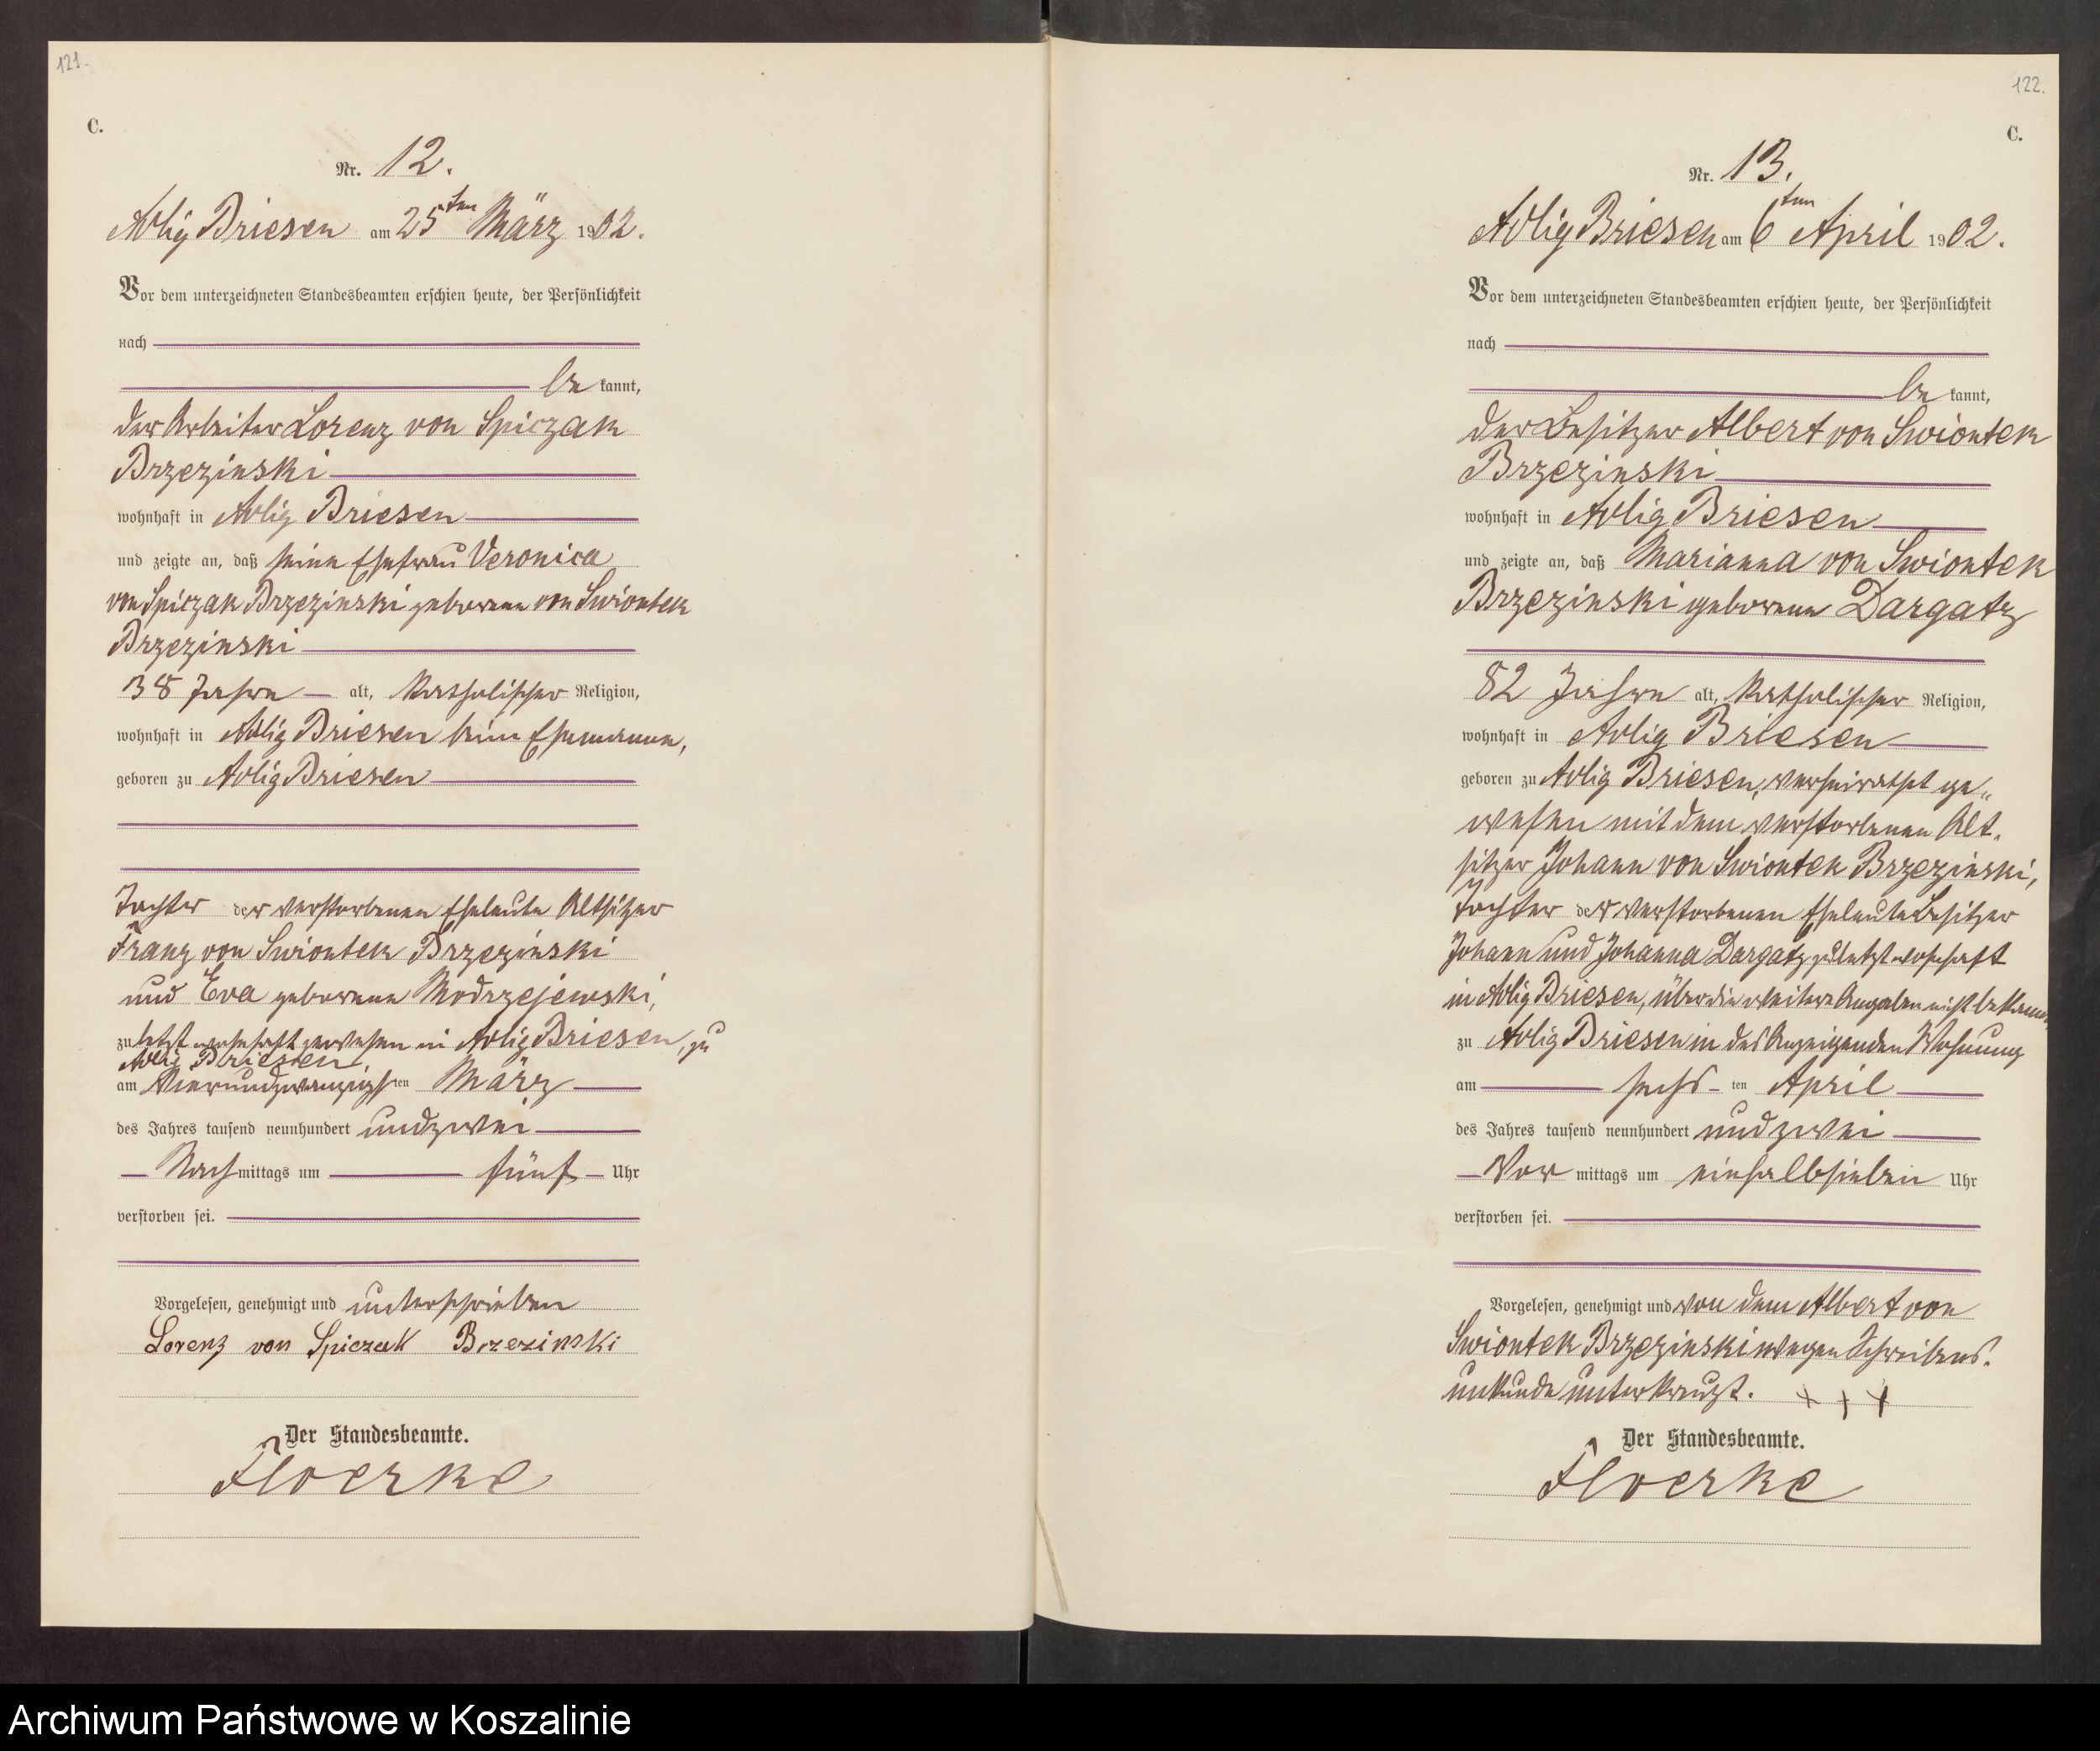 121.
C.
Nr. 12.
Adlig Briesen am 25ten März 1902.
Vor dem unterzeichneten Standesbeamten erschien heute, der Persönlichkeit
nach
be kannt,
der Arbeiter Lorenz von Spiczak
Brzezinski
wohnhaft in Adlig Briesen
und zeigte an, daß seine Ehefrau Veronica
von Spiczak Brzezinski geborene von Swiontek
Brzezinski
38 Jahre alt, katholischer Religion,
wohnhaft in Adlig Briesen beim Ehemanne,
geboren zu Adlig Briesen
Tochter der verstorbenen Eheleute Altsitzer
Franz von Swiontek Brzezinski
und Eva geborene Modrzejewski,
zuletzt wohnhaft gewesen in Adlig Briesen, zu
Adlig Briesen,
am vierundzwanzigsten März
des Jahres tausend neunhundert und zwei
Nachmittags um fünf Uhr
verstorben sei.
Vorgelesen, genehmigt und unterschrieben
Lorenz von Spiczak Brzezinski
Der Standesbeamte.
Floerke
122.
C.
Nr. 13.
Adlig Briesen am 6ten April 1902.
Vor dem unterzeichneten Standesbeamten erschien heute, der Persönlichkeit
nach
be kannt,
der Besitzer Albert von Swiontek
Brzezinski
wohnhaft in Adlig Briesen
und zeigte an, daß Marianna von Swiontek
Brzezinski geborene Dargatz
82 Jahre alt, katholischer Religion,
wohnhaft in Adlig Briesen
geboren zu Adlig Briesen, verheirathet ge„
wesen mit dem verstorbenen Alt-
sitzer Johann von Swiontek Brzezinski,
Tochter der verstorbenen Eheleute Besitzer
Johann und Johanna Dargatz zuletzt wohnhaft
in Adlig Briesen, über die weitere Angaben nicht bekannt,
zu Adlig Briesen in des Anzeigenden Wohnung
am sechsten April
des Jahres tausend neunhundert und zwei
Vormittags um einhalbsieben Uhr
verstorben sei.
Vorgelesen, genehmigt und von dem Albert von
Swiontek Brzezinski wegen Schreibens-
unkunde unterkreuzt. + + +
Der Standesbeamte.
Floerke
Archiwum Państwowe w Koszalinie